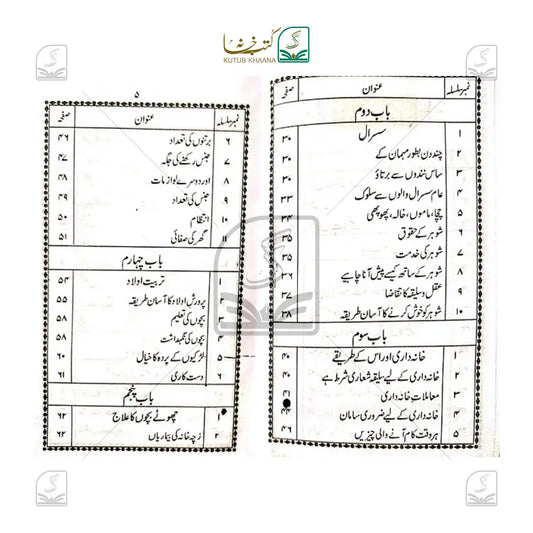 کتب خانہ
KUTUB KHAANA
نمبر سلسلہ عنوان صفحہ
باب دوم
۱ سسرال ۳۰
۲ چند دن بطور مہمان کے ۳۰
۳ ساس نندوں سے برتاؤ ۳۰
۴ عام سسرال والوں سے سلوک ۳۳
۵ چچا، ماموں، خالہ، پھوپھی ۳۴
۶ شوہر کے حقوق ۳۵
۷ شوہر کی خدمت ۳۵
۸ شوہر کے ساتھ کیسے پیش آنا چاہیے ۳۶
۹ عقل و سلیقہ کا تقاضا ۳۷
۱۰ شوہر کو خوش کرنے کا آسان طریقہ ۳۸
باب سوم
۱ خانہ داری اور اس کے طریقے ۴۰
۲ خانہ داری کے لیے سلیقہ شعاری شرط ہے ۴۰
۳ معاملات خانہ داری ۴۱
۴ خانہ داری کے لیے ضروری سامان ۴۴
۵ ہر وقت کام آنے والی چیزیں ۴۶
۵
نمبر سلسلہ عنوان صفحہ
۶ برتنوں کی تعداد ۴۶
۷ جنس رکھنے کی جگہ ۴۷
۸ اور دوسرے لوازمات ۴۸
۹ جنس کی تعداد ۴۹
۱۰ انتظام ۵۰
۱۱ گھر کی صفائی ۵۱
باب چہارم
۱ تربیت اولاد ۵۴
۲ پرورش اولاد کا آسان طریقہ ۵۵
۳ بچوں کی تعلیم ۵۸
۴ بچوں کی نگہداشت ۵۸
۵ لڑکیوں کے پردہ کا خیال ۶۰
۶ دست کاری ۶۱
باب پنجم
۱ چھوٹے بچوں کا علاج ۶۲
۲ زچہ خانہ کی بیماریاں ۶۲